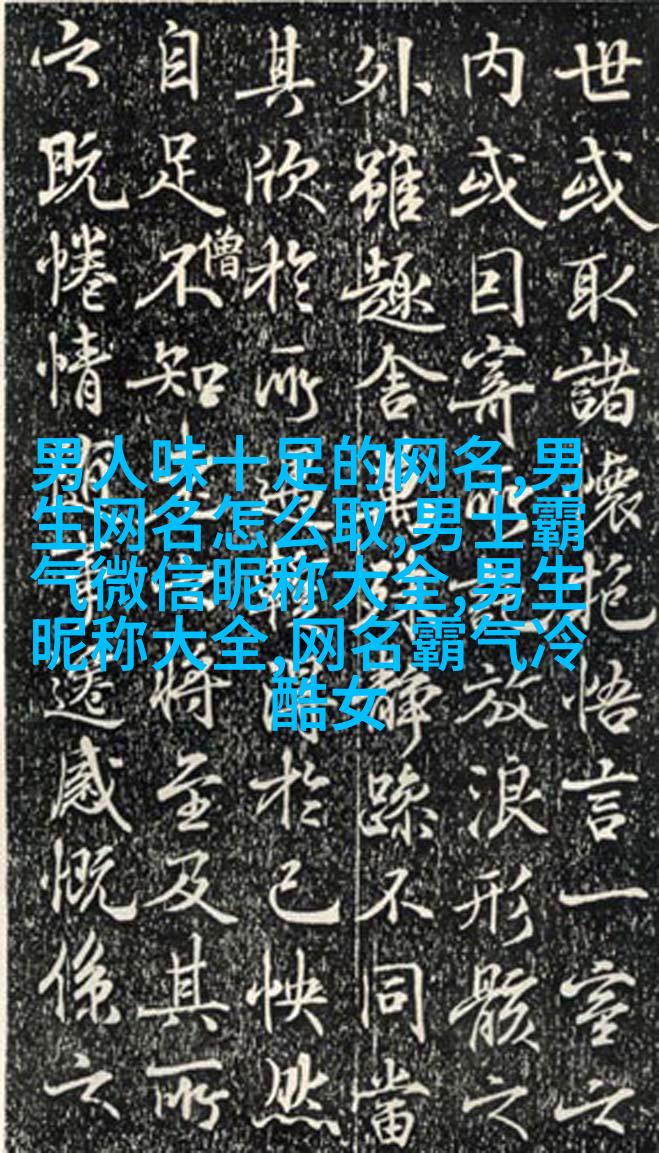 男人味十足的网名,男
生网名怎么取,男士霸
气微信昵称大全,男生
昵称大全,网名霸气冷
酷女
世或取諸懷抱悟言一室之
内或因寄所放浪形骸之
外雖趣舍靜躁不同當
其欣於所於己怏然
自足不知將至及其所
僧
之既惓情遷感慨係之